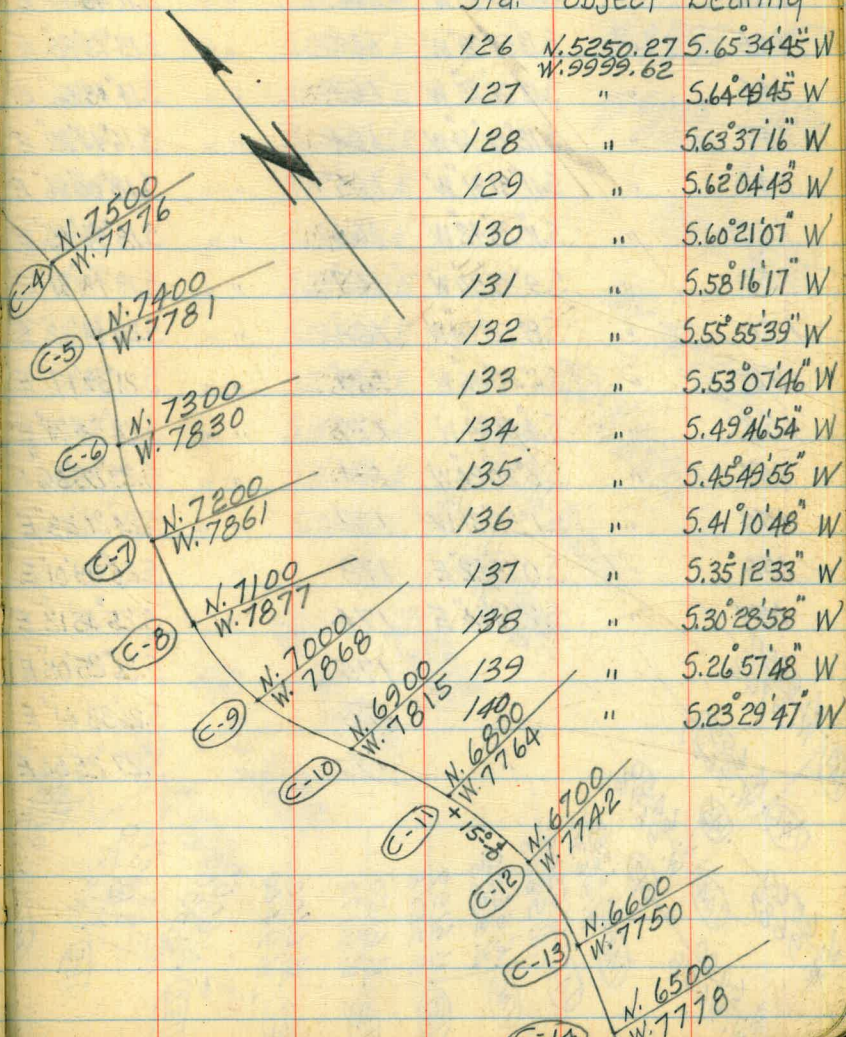 Sta. Object Bearing
126 N.5250.27 S.65°34'45" W
W.9999.62
127 " S.64°49'45" W
128 " S.63°37'16" W
129 " S.62°04'43" W
130 " S.60°21'07" W
131 " S.58°16'17" W
132 " S.55°55'39" W
133 " S.53°07'46" W
134 " S.49°46'54" W
135 " S.45°49'55" W
136 " S.41°10'48" W
137 " S.35°12'33" W
138 " S.30°28'58" W
139 " S.26°57'48" W
140 " S.23°29'47" W
N
C-4 N.7500
W.7776
C-5 N.7400
W.7781
C-6 N.7300
W.7830
C-7 N.7200
W.7861
C-8 N.7100
W.7877
C-9 N.7000
W.7868
C-10 N.6900
W.7815
C-11 N.6800
W.7764
C-12 N.6700
W.7742
C-13 N.6600
W.7750
C-14 N.6500
W.7778